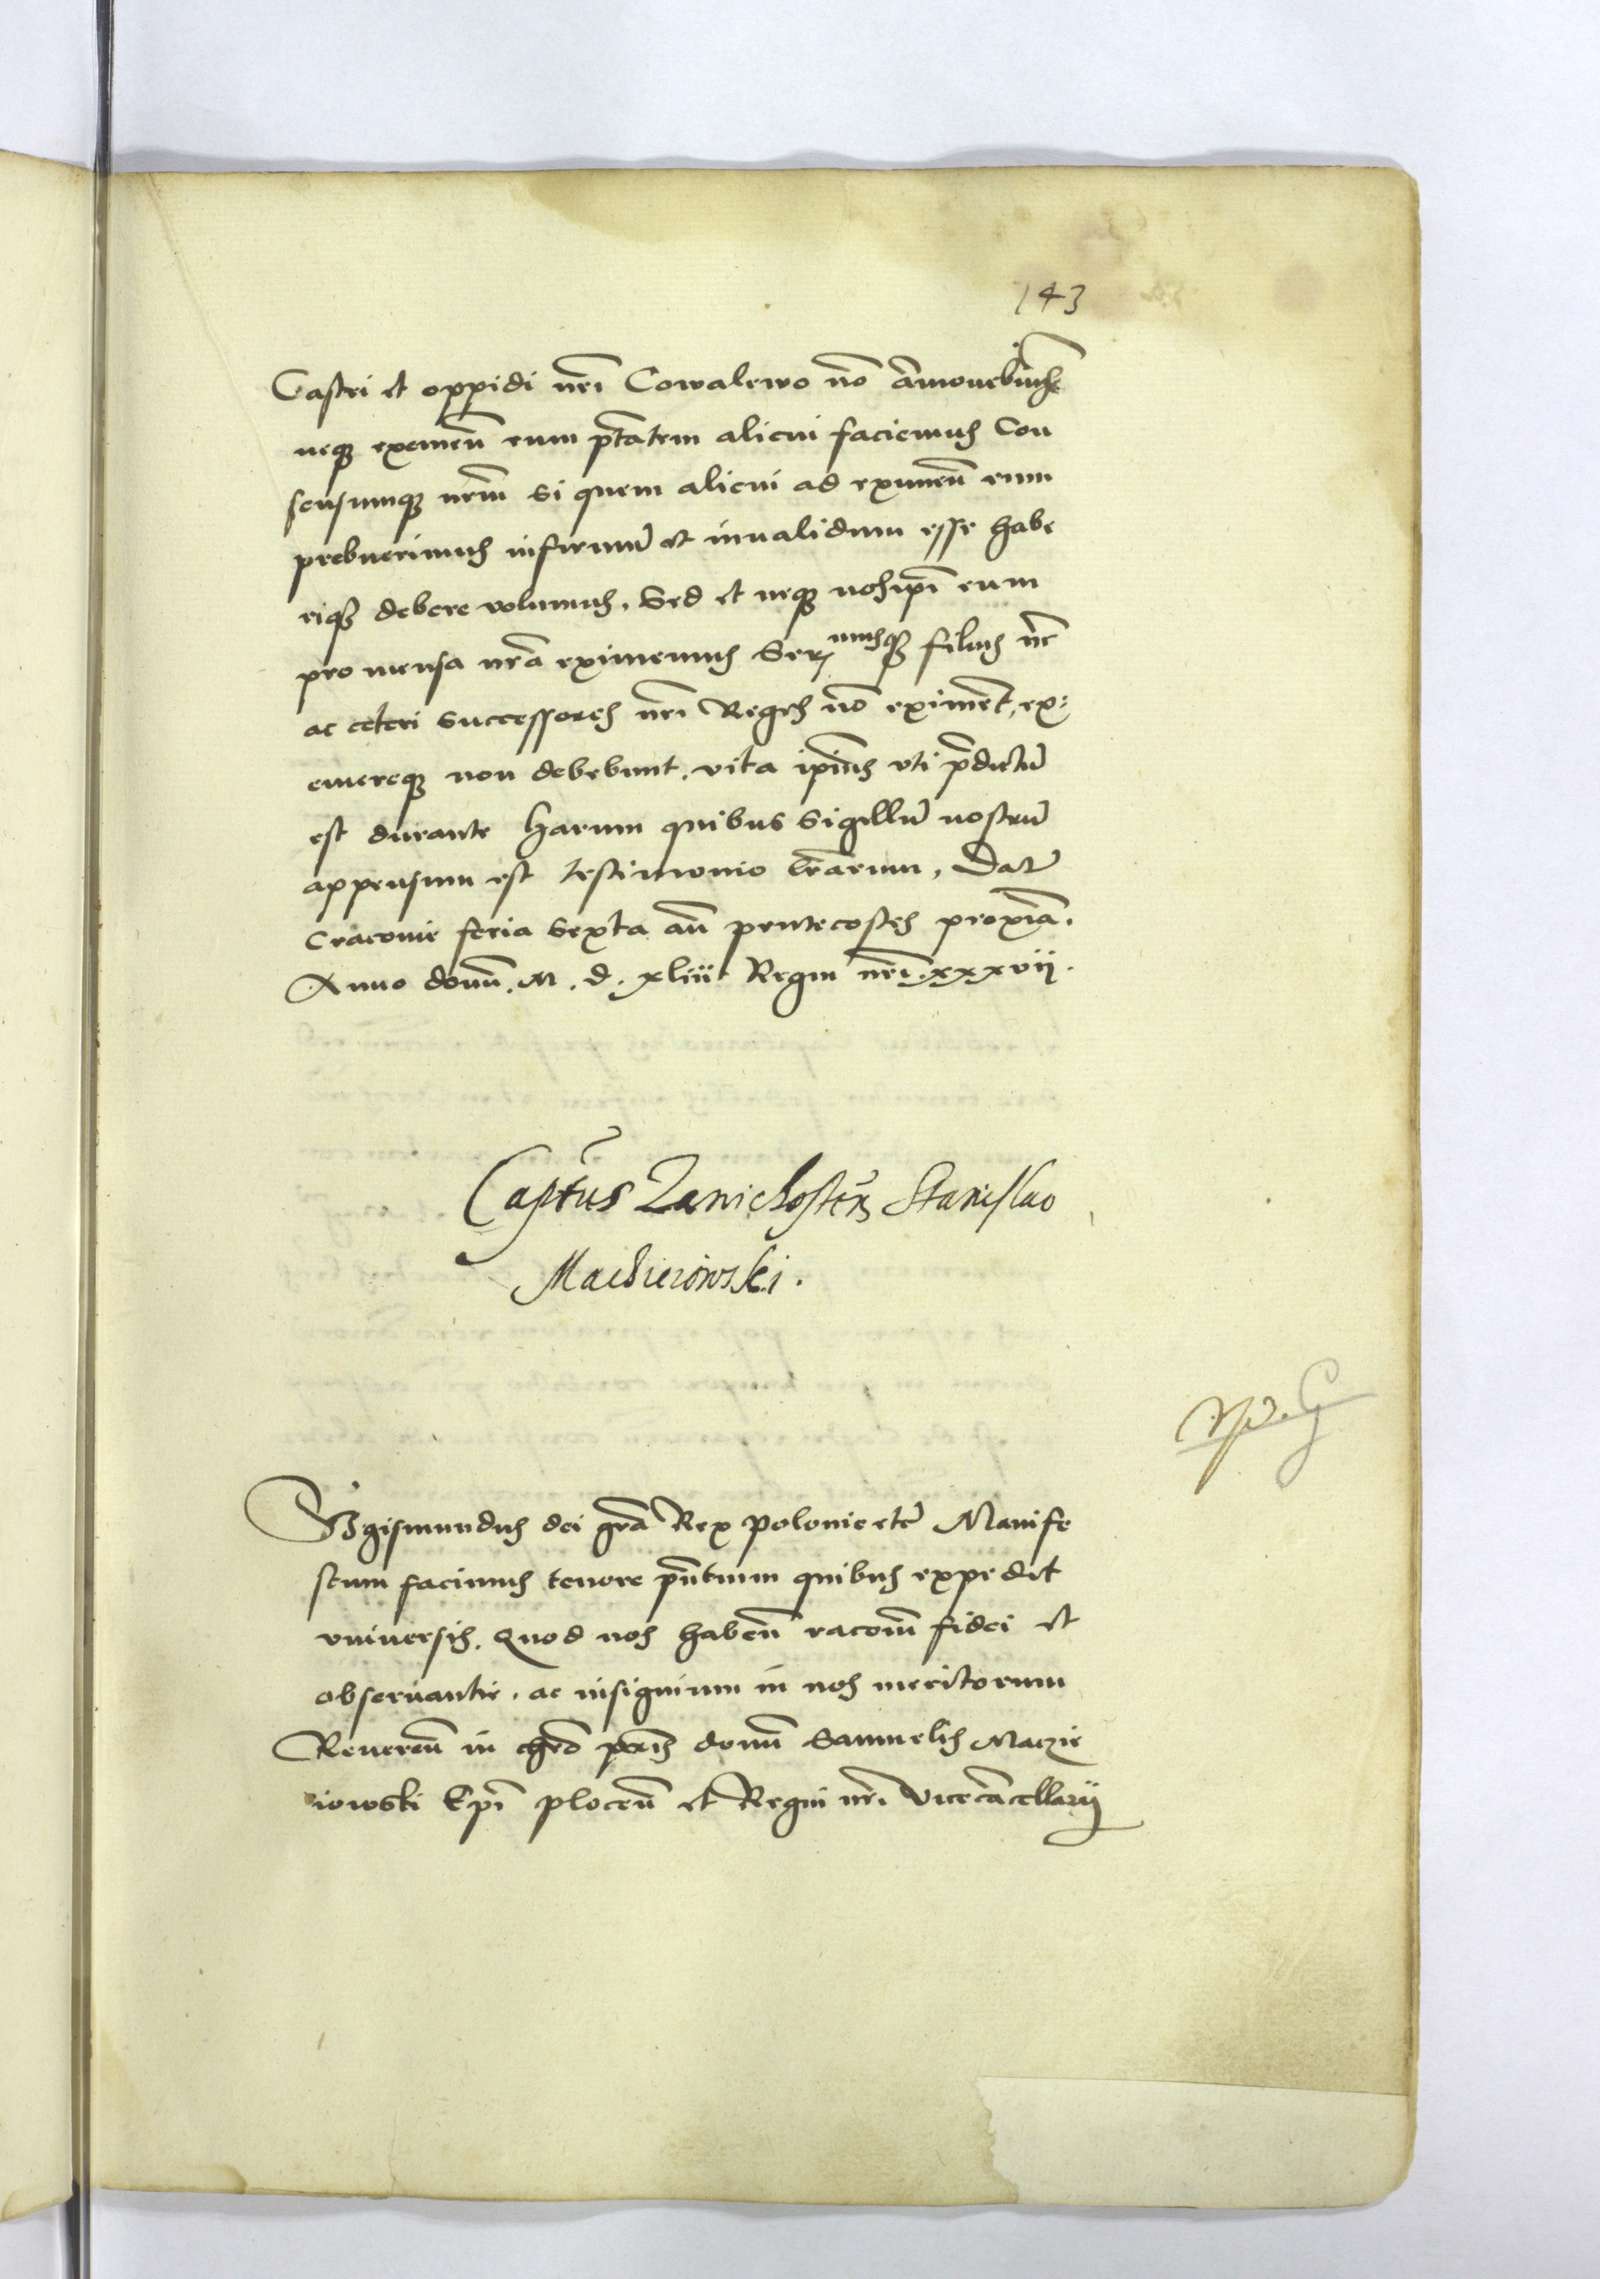 143
Castri et oppidi nrī Cowalewo nō āmouebimus
neqʒ eximeñ eum ptātem alicui faciemus Con
sensumqʒ nrm̄ si quem alicui ad eximeñ eum
prebuerimus infirmū et inualidum esse habe
riqʒ debere volumus. Sed et neqʒ nosipī eum
pro mensa nrā eximemus Serᵐᵘˢqʒ filius nr̄
ac ceteri successores nrī Reges nō exīment, ex:
emereqʒ non debebunt, vita ipīus vti p̄dictū
est durante harum quibus Sigillū nostrū
appensum est testimonio lrārum, Dat̄
Cracouie feria Sexta añ pentecostes proxīā.
Anno domī. M. d. xliiii Regni nrī. xxxvii.
Captūs Zawichosteñ Stanislao
Maciieiowski.
Sigismundus dei grā Rex polonie etc̄ Manife
stum facimus tenore pn̄tium quibus expedit
vniversis. Quod nos habeñ racoēm fidei et
obseruantie, ac insignium in nos meritorum
Revereñ in chrō pris domī Samuelis Maczie
iowski Epī ploceñ et Regni nrī Vicecācellarij